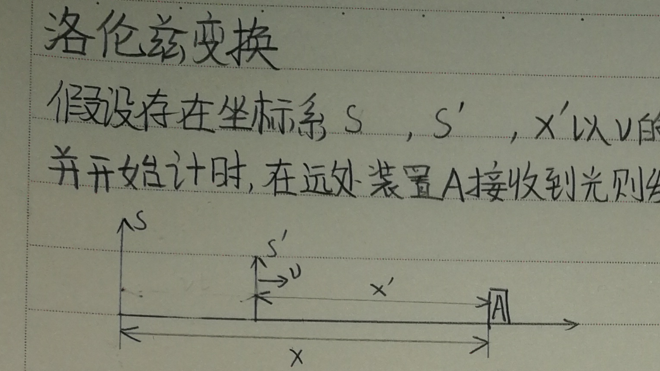 洛伦兹变换
假设存在坐标系 S , S' , x'以ν的
并开始计时,在远处装置A接收到光则
S
S'
ν
x'
A
x